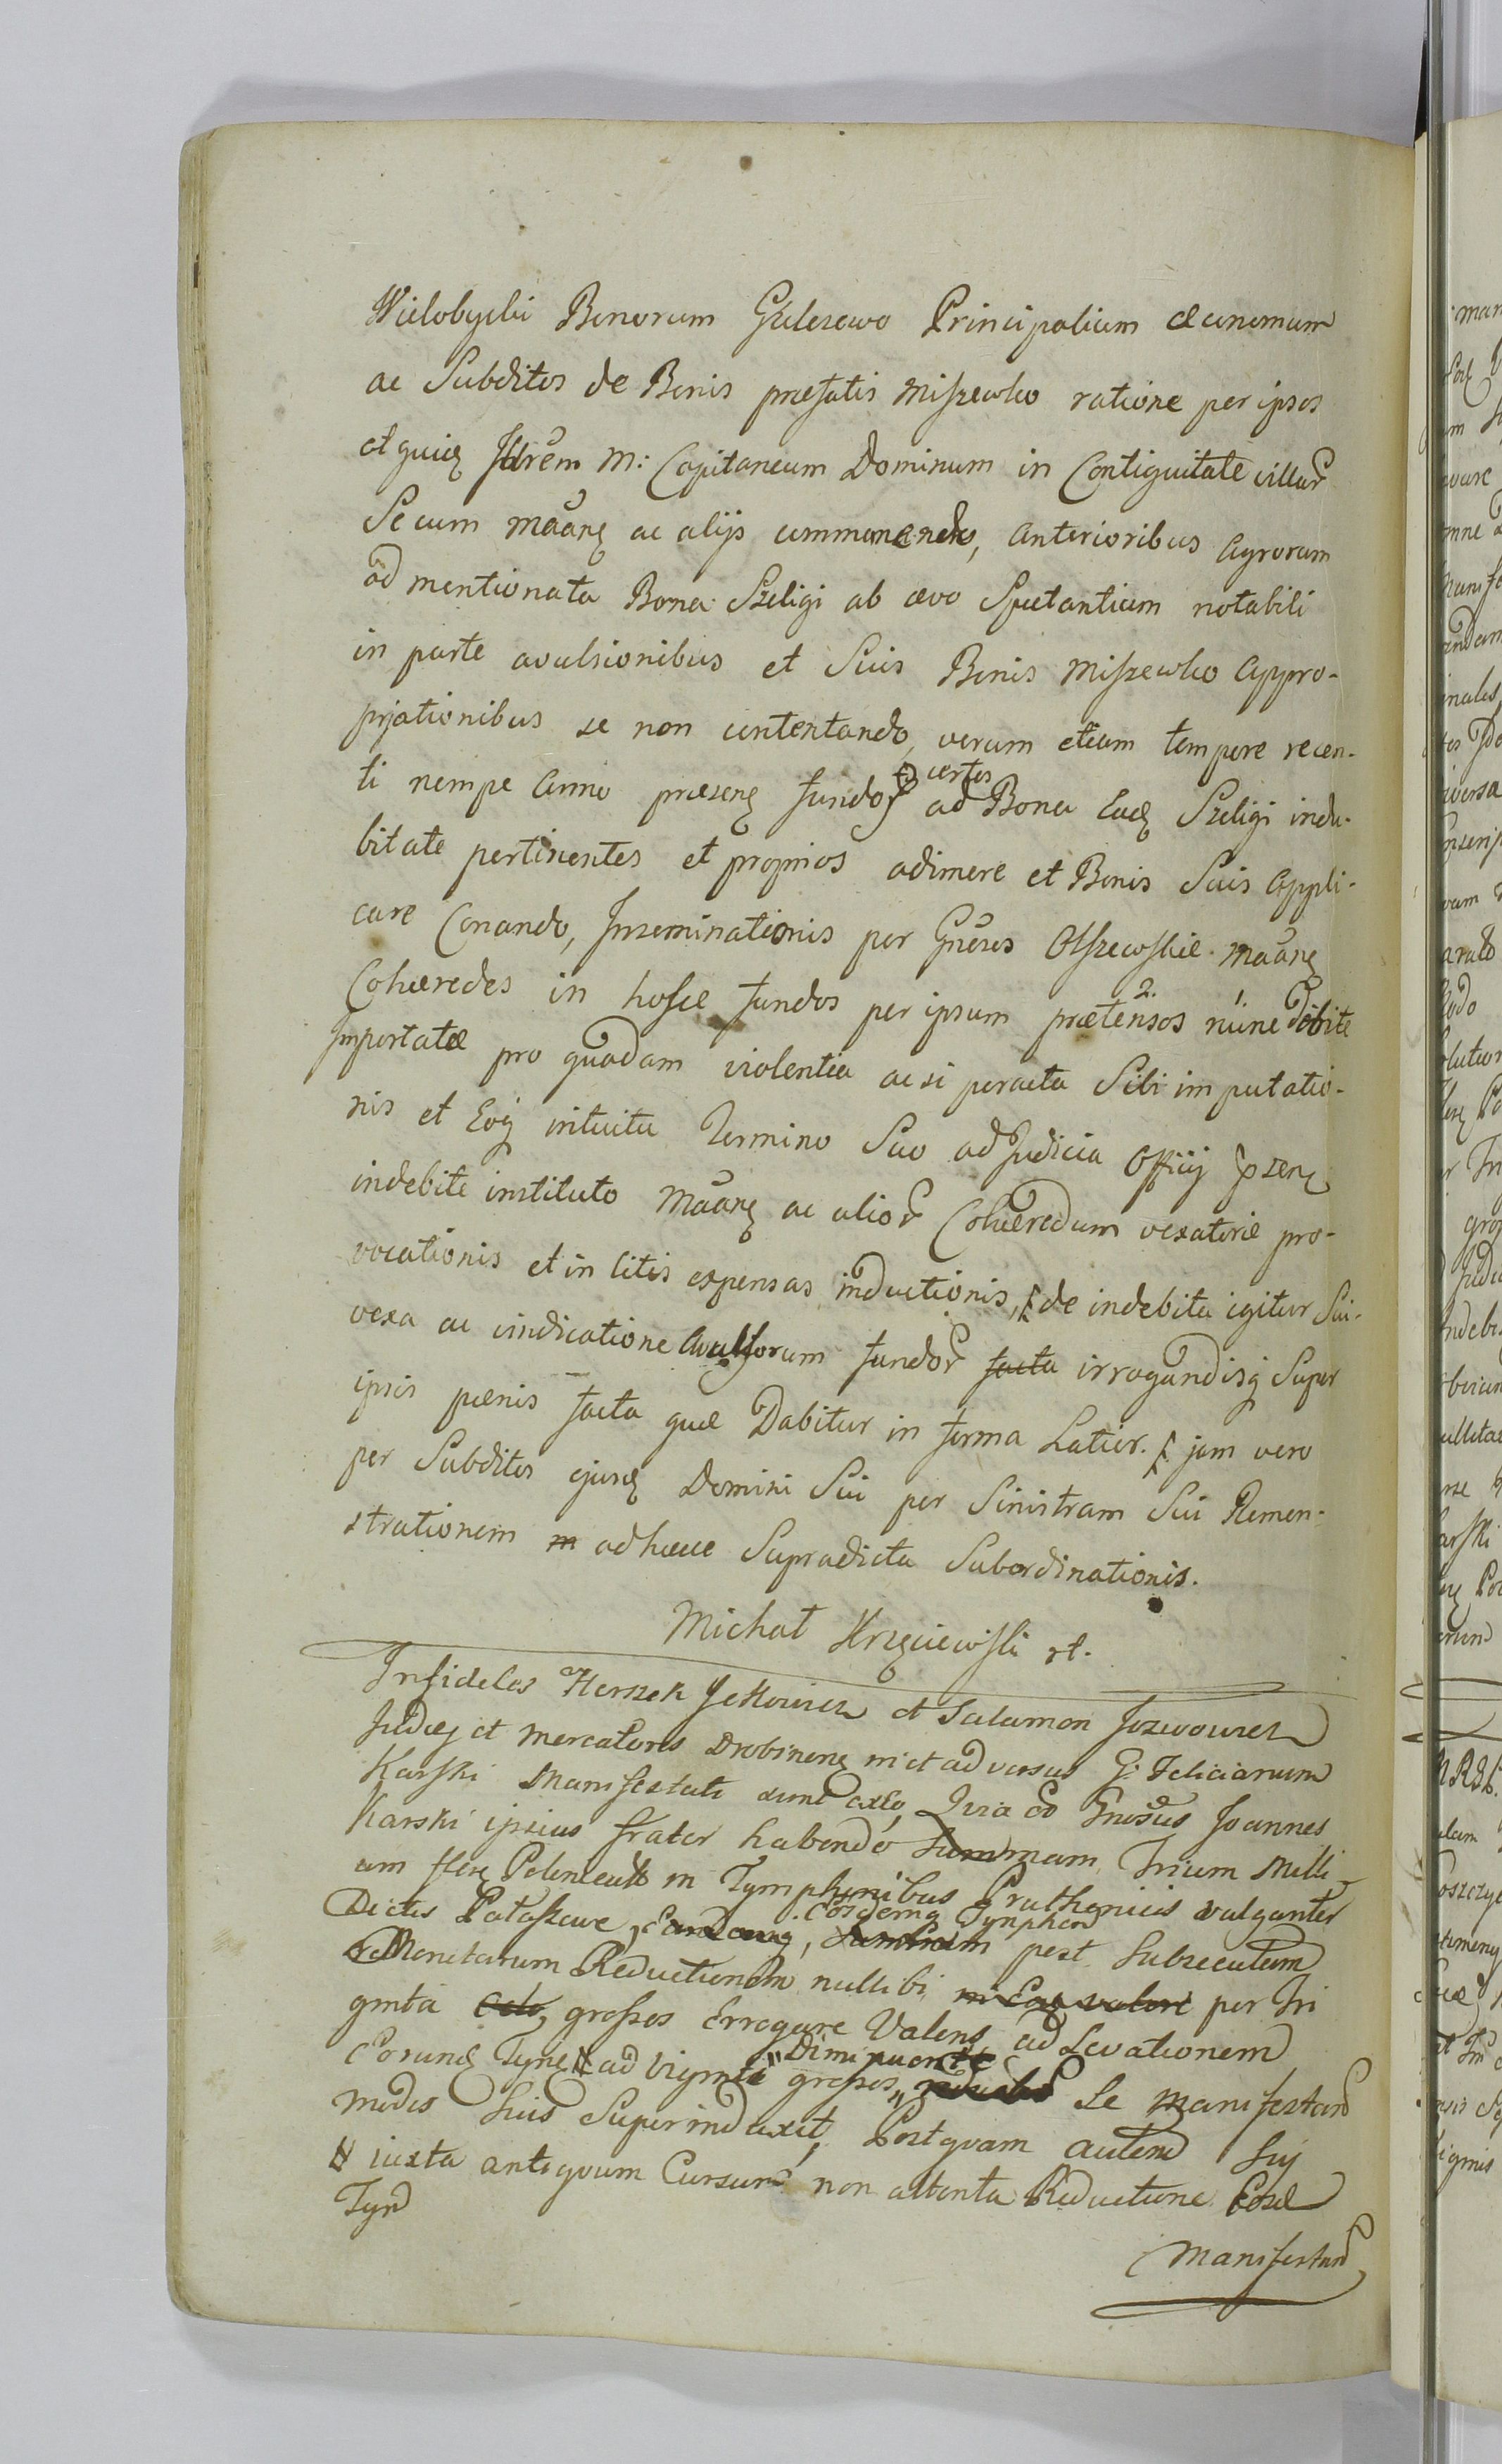 Wielobycki Bonorum Gulczewo Principalium Œconomum
ac Subditos de Bonis præfatis Miszewko ratione per ipsos
M: Capitaneum Dominum in Contiguitate villar
Secum ac alijs commanendo, anterioribus Agrorum
ad mentionata Bona Szeligi ab ævo Spectantium notabili
in parte avulsionibus et Suis Bonis Miszewko Appro-
prjationibus se non contentando, verum etiam tempore recen-
ti nempe Anno præsenę fundos certos ad Bona Szeligi indu-
bitate pertinentes et proprios adimere et Bonis Suis Appli-
care Conando, Inseminationis per Gnẽsos Olszewskie
Cohæredes in hosce fundos per ipsum prætensos 2. nunc 1 debite
Importatæ pro quadam violentia ac si peracta Sibi imputatio-
nis et intuitu Termino Suo ad Judicia Officij
indebite instituto ac alior Cohæredum vexatoriæ pro-
vocationis et in litis expensas inductionis, de indebita igitur Sui
vexa ac vindicatione Avulsorum fundor facta irrogandisq Super
ipsis pœnis facta quæ Dabitur in forma Latior. jam vero
per Subditos Domini Sui per Sinistram Sui Remon-
strationem m ad hæcce Supradicta Subordinationis.
Michał
Infideles Herszek et Salamon
et Mercatores Drobinenę in et adversus G: Felicianum
Karski Manifestati sunt Quia Joannes
Karski ipsius frater habendo Summam Trium Milli-
um in Tymphonibus Pruthenicis vulganter
Dictis Summam post Subsecutam
Monetarum Reductionem nullibi in valore per Tri
ginta grossos Erogare Valens ad Levationem
ad viginti grossos Diminuente Se Manifestan
modis Suis Superinduxit, Postquam autem Sui
iuxta antiquum Cursum non attenta Reductione
Tyn
Manifestan